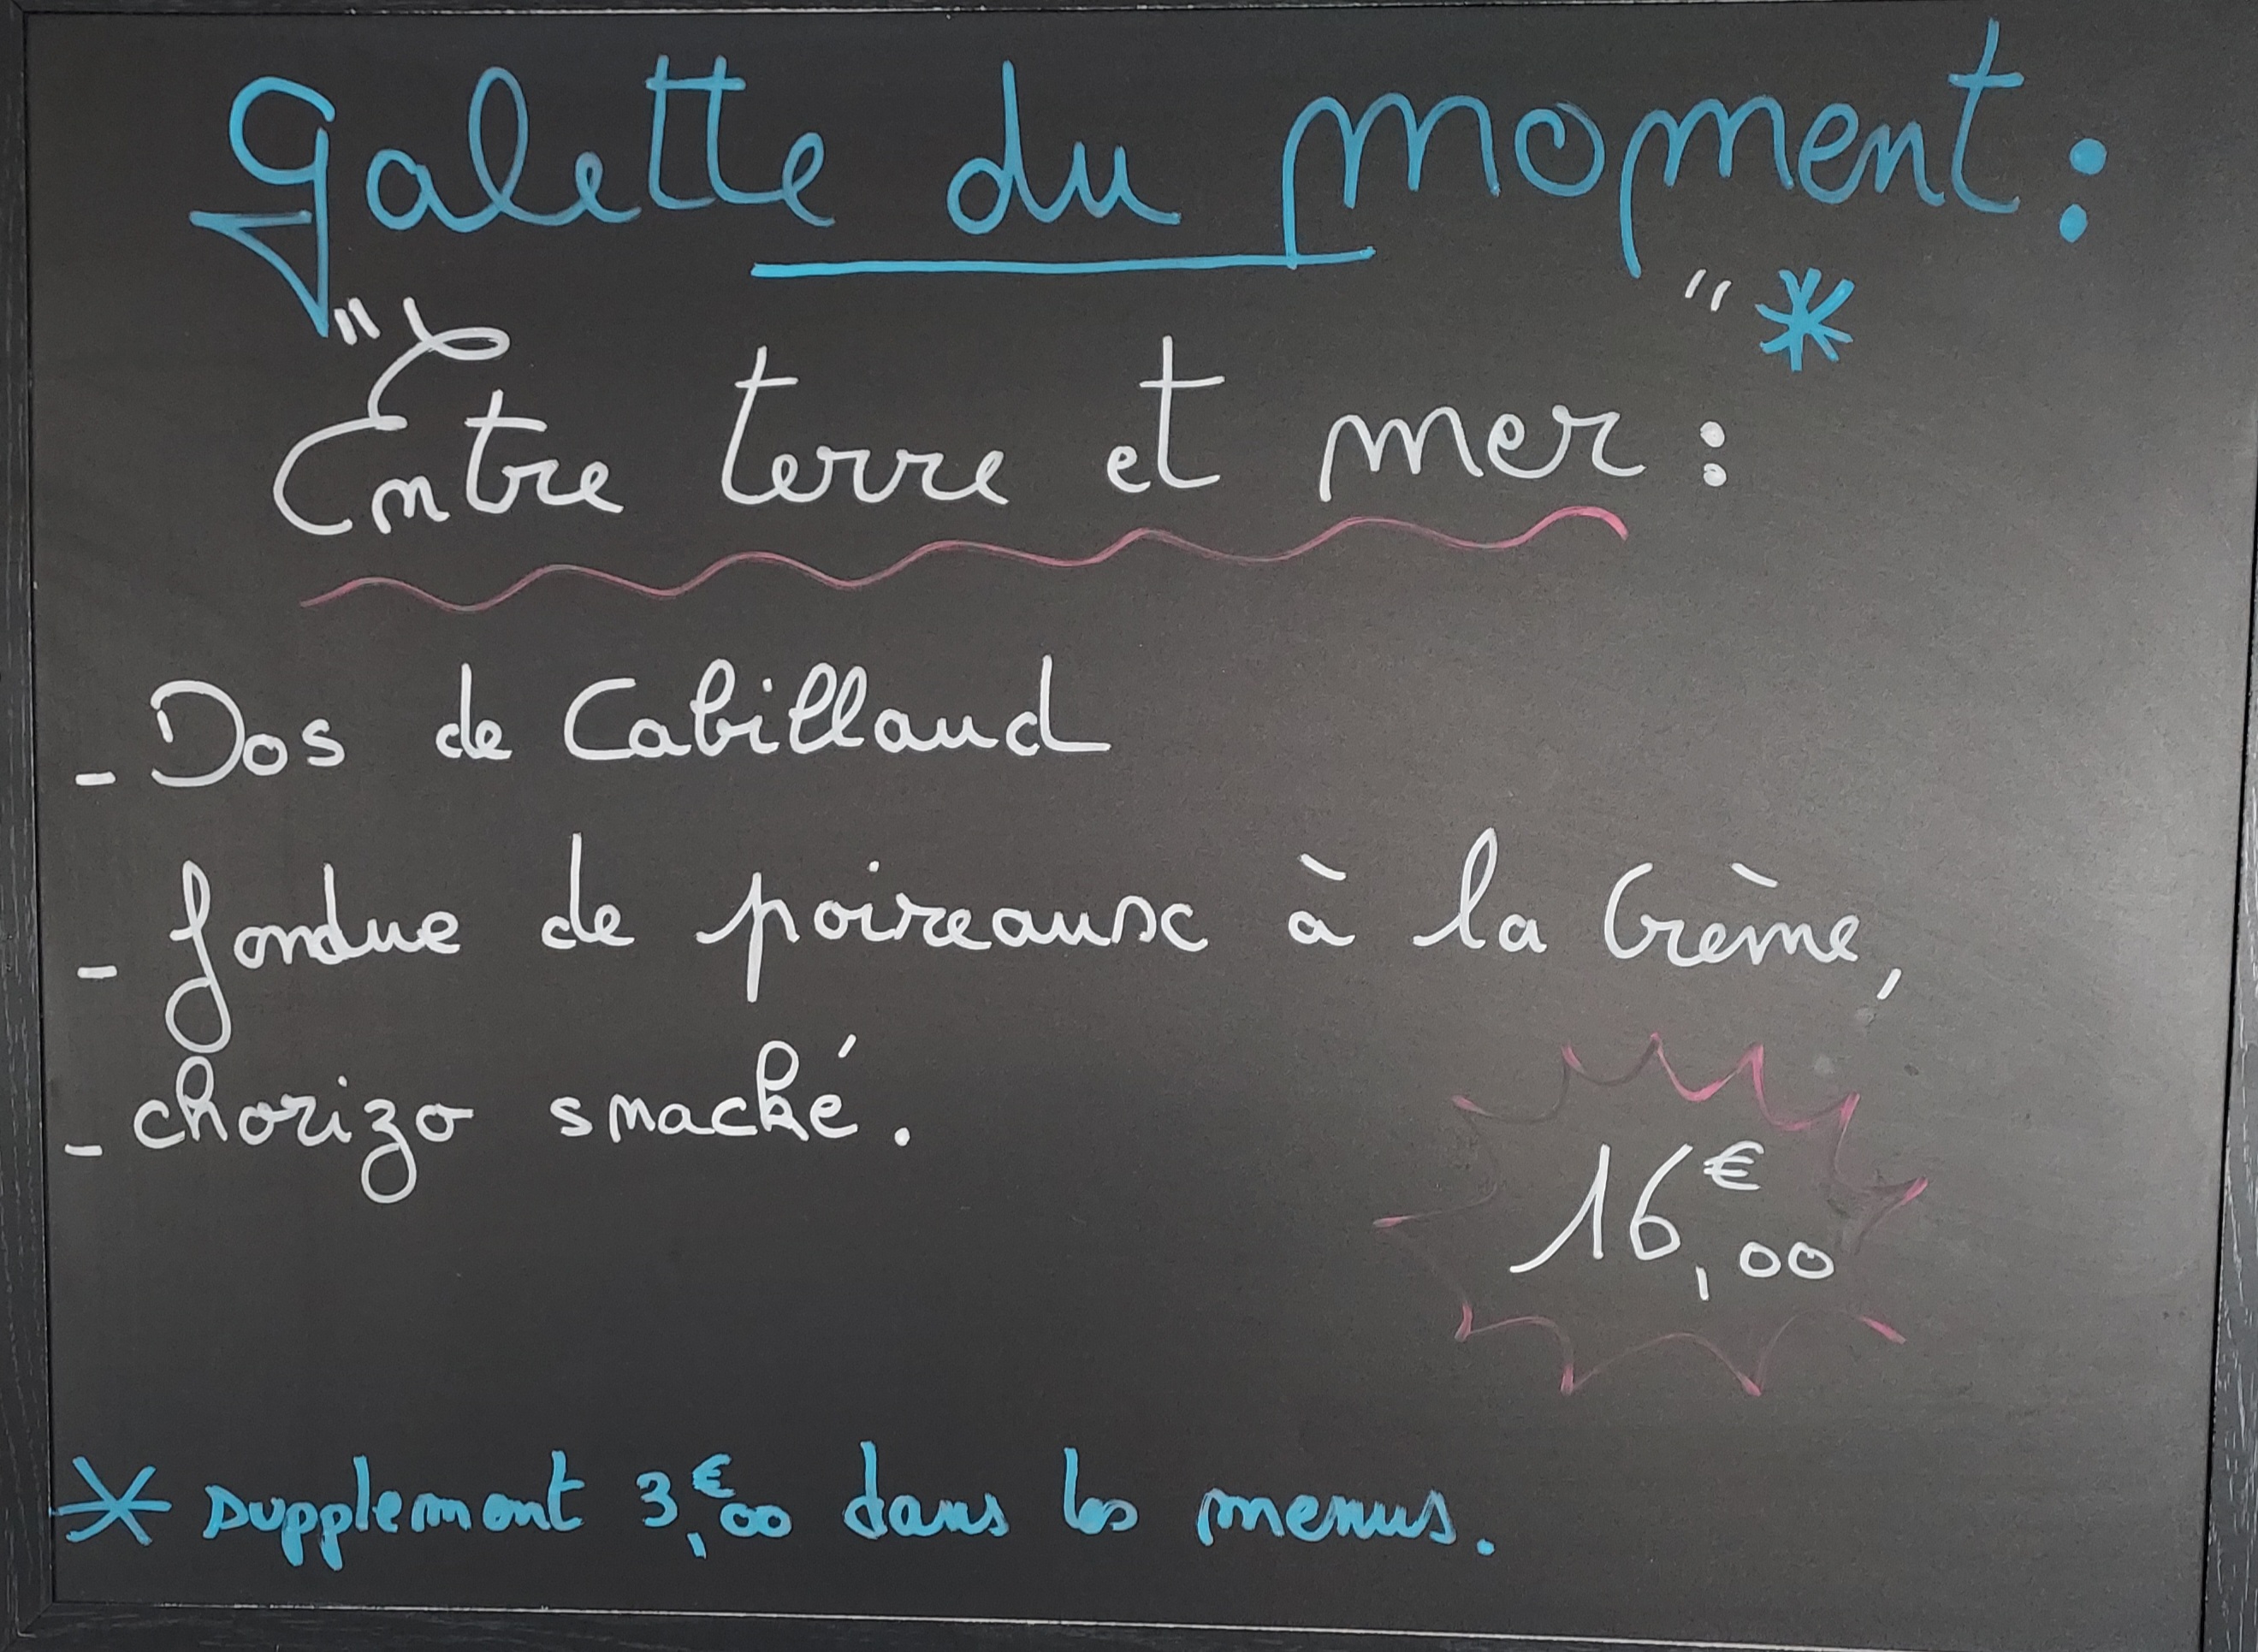 Galette du moment :
"Entre terre et mer : " *
- Dos de Cabillaud
- fondue de poireaux à la Crème,
- chorizo smacké.
16,€00
* supplement 3,€00 dans les menus.